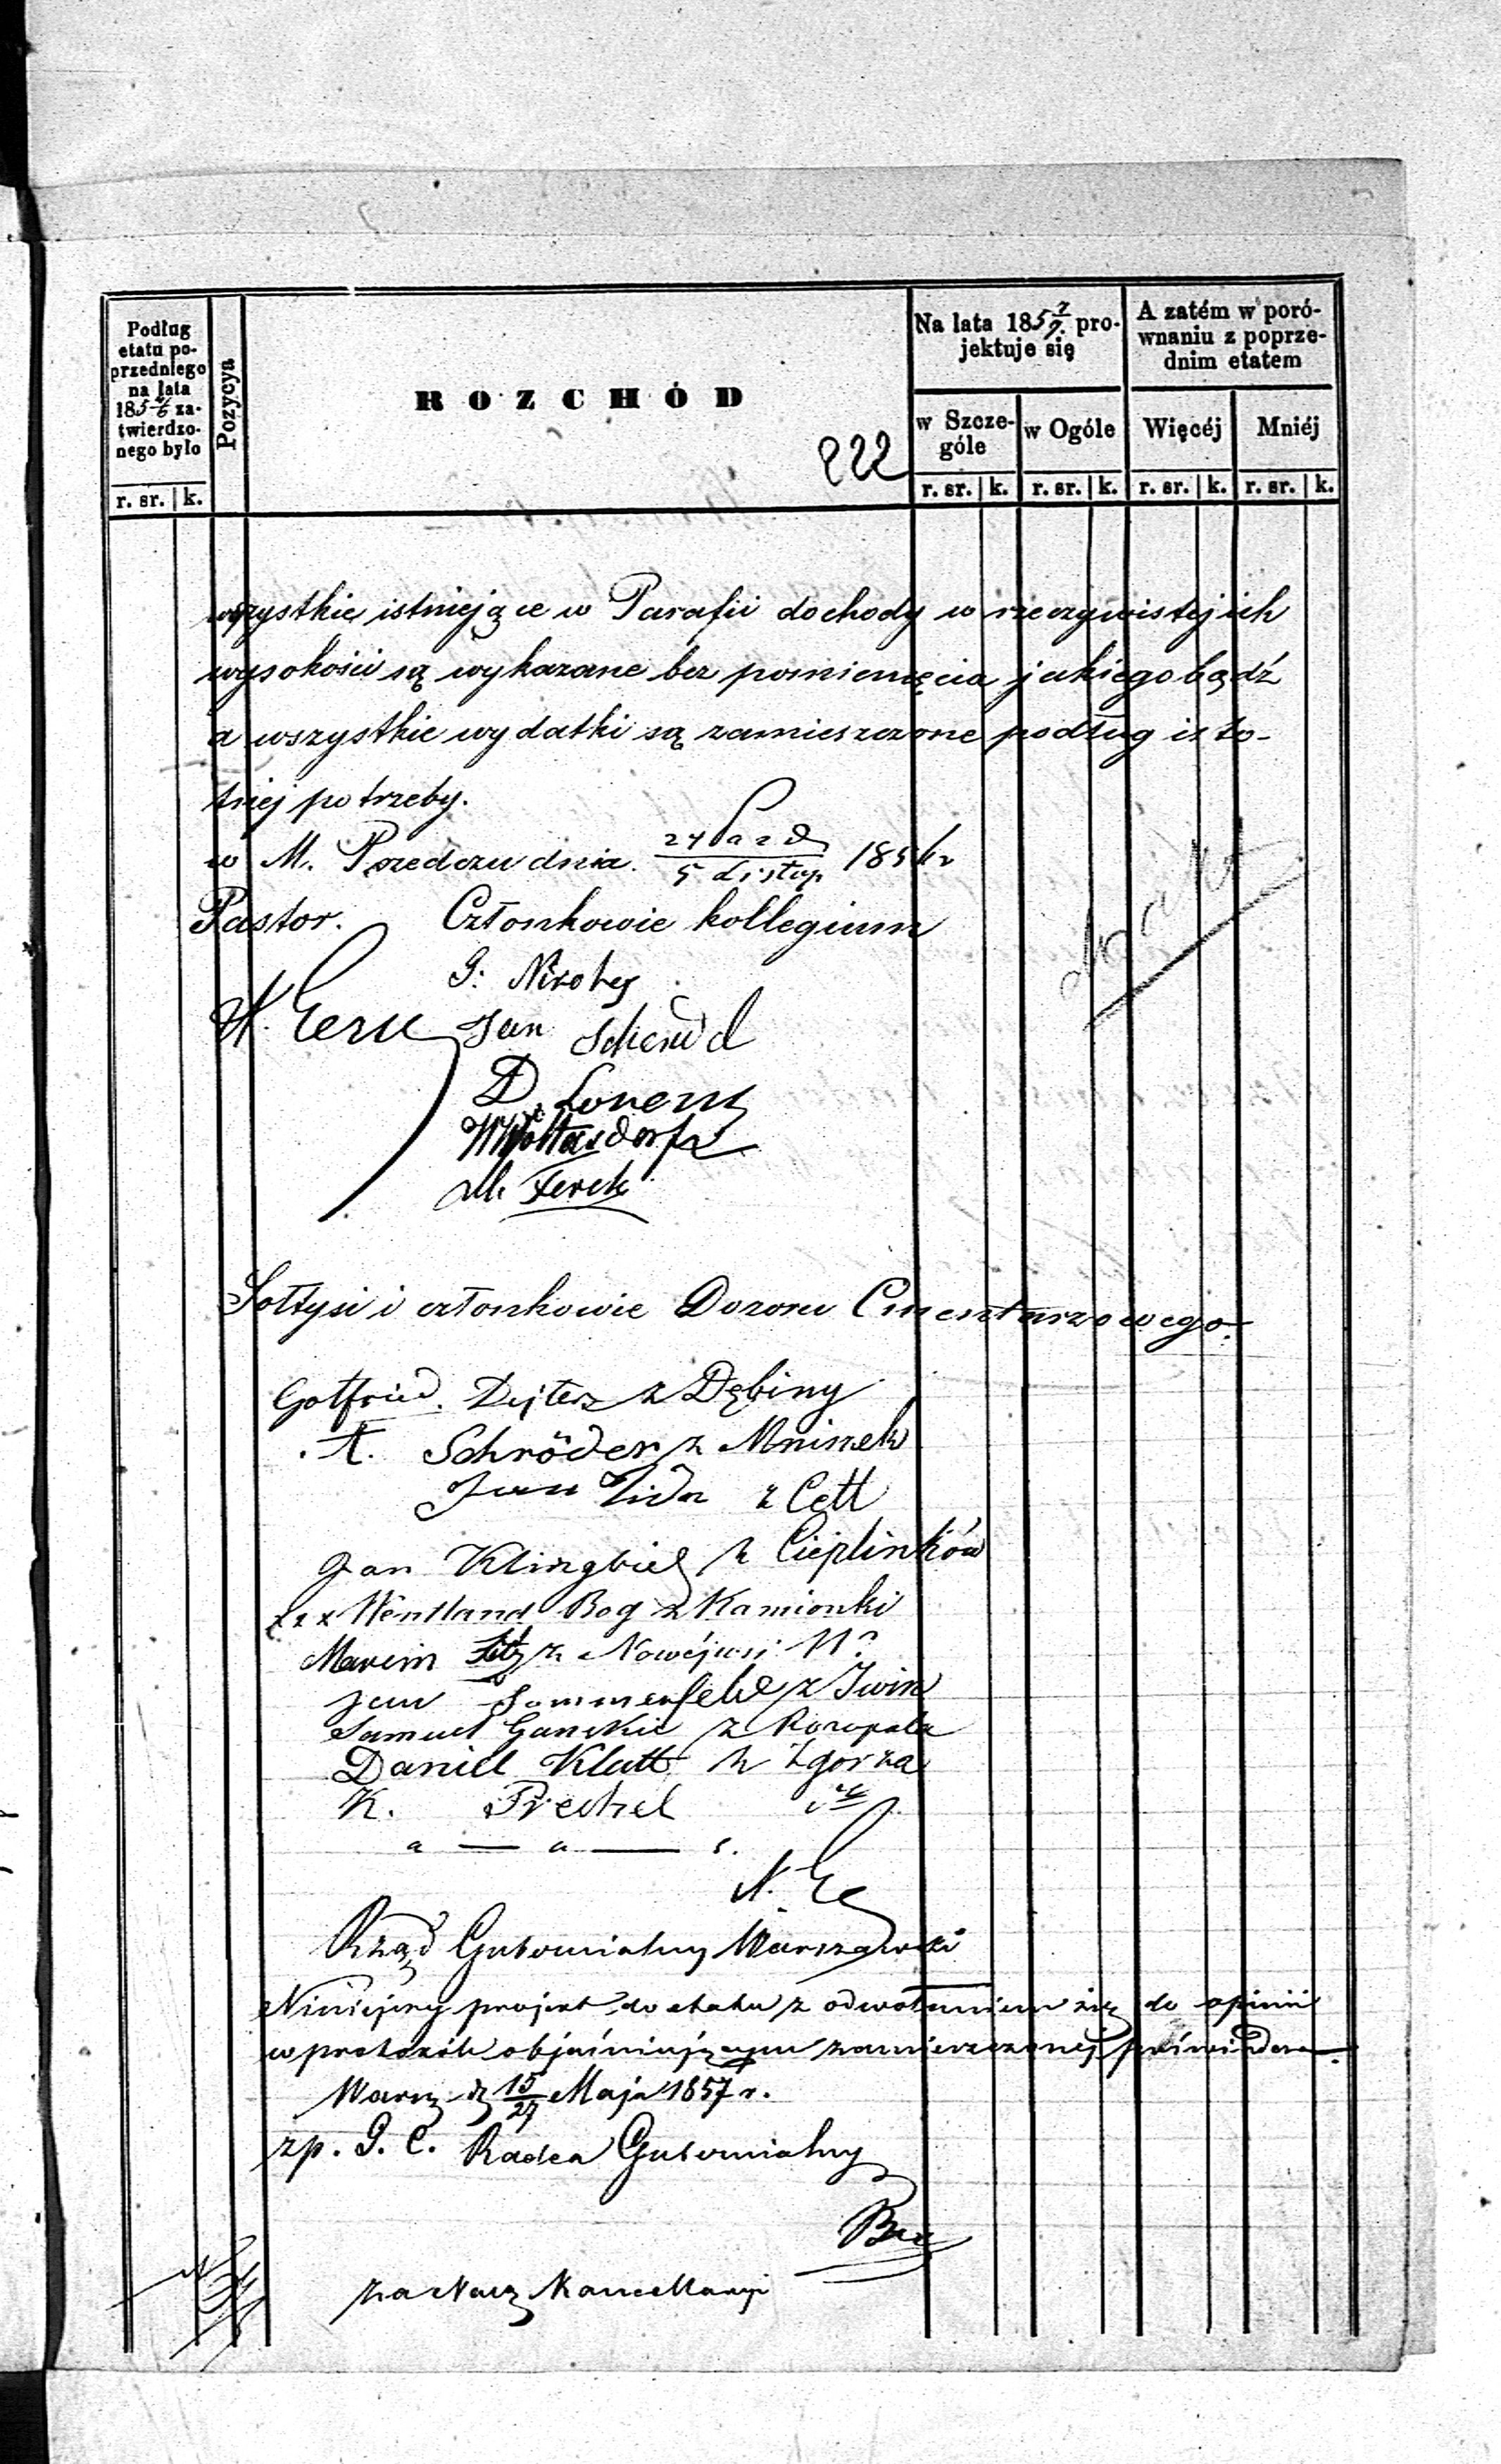 Podług
etatu po-
przedniego
na lata
185 4/6 za-
twierdzo-
nego było
r. sr. k.
Pozycya
ROZCHÓD
222
Na lata 185 7/9 pro-
jektuje się
w Szcze-
góle
w Ogóle
r. sr. k. r. sr. k.
A zatém w poró-
wnaniu z poprze-
dnim etatem
Więcéj
Mniéj
r. sr. k. r. sr. k.
wszystkie istniejące w Parafii dochody w rzeczywistej ich
wysokości są wykazane bez pominięcia jakiego bądź
a wszystkie wydatki są zamieszczone podług isto-
tnej potrzeby.
w M. Przedczu dnia 24 Paźd / 5 Listop 1856 r
Pastor. Członkowie kollegium
G.
Jan
D.
M. Ferck
Sołtysi i członkowie Dozoru Cmentarzowego.
Gotfried z Dębiny
A. Schröder z Mniszek
Jan z Cett
Jan Klingbiel z Cieplinków
xxx Wentland Bog z Kamionki
z Nowéjwsi
Jan Sommerfeld z
Samuel z Rozopola
Daniel Klatt z Zgorza
K. Prechel
Rząd Gubernialny Warszawski
Niniejszy projekt do etatu z odwołaniem się do opinii
w protokóle objaśniającym zamieszczonej
Warsz d 15/27 Maja 1857 r.
zp. G. C. Radca Gubernialny
za Nacz Kancellaryi